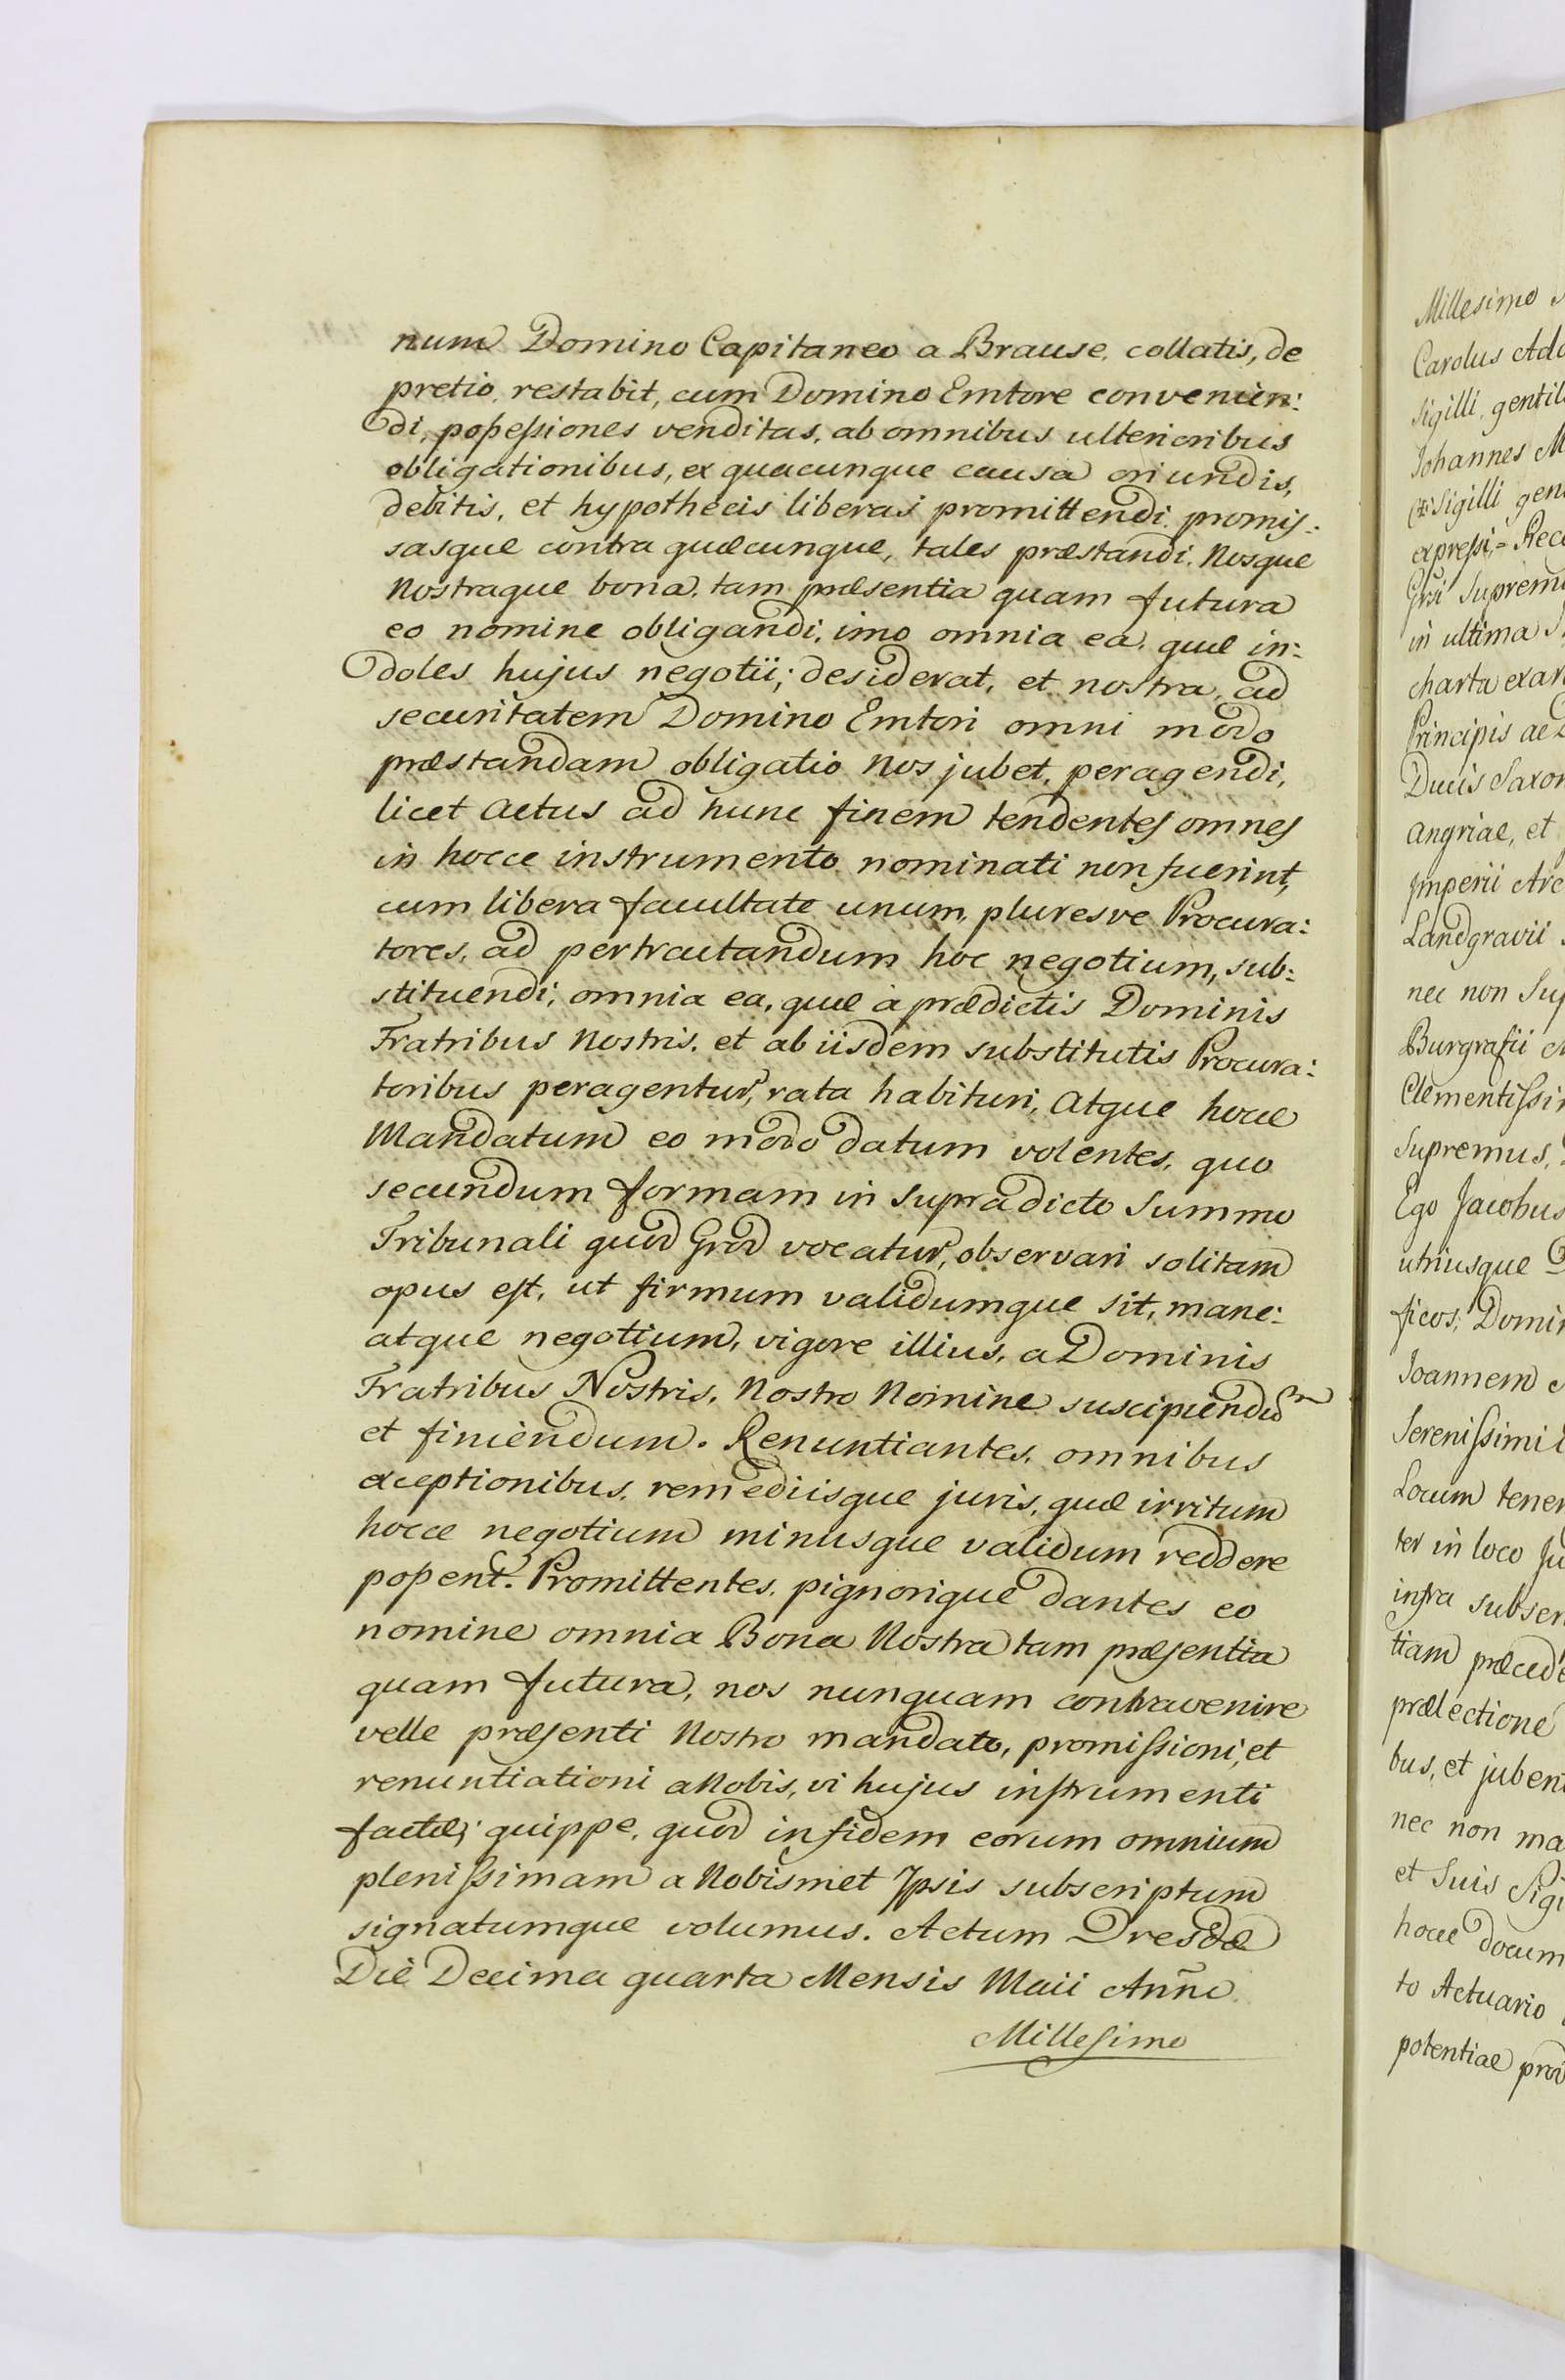 num Domino Capitaneo a Brause, collatis, de
pretio, restabit, cum Domino Emtore convenien:
di, possessiones venditas, ab omnibus ulterioribus
obligationibus, ex quacunque causa oriundis,
debitis, et hypothecis liberas promittendi, promis:
sasque contra quæcunque, tales præstandi, Nosque
Nostraque bona, tam præsentia quam futura
eo nomine obligandi, imo omnia ea, quæ in:
doles hujus negotii, desiderat, et nostra, ad
securitatem Domino Emtori omni modo
præstandam obligatio Nos jubet, peragendi,
licet actus ad hunc finem tendentes omnes
in hocce instrumento nominati non fuerint,
cum libera facultate unum, pluresve Procura:
tores, ad pertractandum hoc negotium, sub:
stituendi, omnia ea, quæ à prædictis Dominis
Fratribus Nostris, et ab iisdem substitutis Procura:
toribus peragentur, rata habituri, Atque hocce
Mandatum eo modo datum volentes, quo
secundum formam in supradicto Summo
Tribunali quod Grod vocatur, observari solitam
opus est, ut firmum validumque sit, mane:
atque negotium, vigore illius, a Dominis
Fratribus Nostris, Nostro Nomine suscipiendum
et finiendum. Renuntiantes, omnibus
exceptionibus, remediisque juris, quæ irritum
hocce negotium minusque validum reddere
possent. Promittentes, pignorique dantes eo
nomine omnia Bona Nostra tam præsentia
quam futura, nos nunquam contravenire
velle præsenti Nostro mandato, promissioni, et
renuntiationi a Nobis, vi hujus instrumenti
factæ; quippe, quod in fidem eorum omnium
plenissimam a Nobismet Ipsis subscriptum
signatumque volumus. Actum Dresdæ
Die Decima quarta Mensis Maii Anno
Millesimo
Millesimo
Carolus Ado
Sigilli gentil
Johannes M
Sigilli gen
expressi,= Rec
Grsi Suprem
in ultima
charta exar
Principis ac
Ducis Saxon
Angriae, et
Imperii Arc
Landgravii
nec non Sup
Burgrafii
Clementissi
Supremus,
Ego Jacobus
utriusque
ficos, Domi
Joannem
Serenissimi
Locum tenen
ter in loco Ju
infra subser
tiam præced
prælectione
bus, et juben
nec non ma
et Suis Sigi
hocce docum
to Actuario
potentiae pro